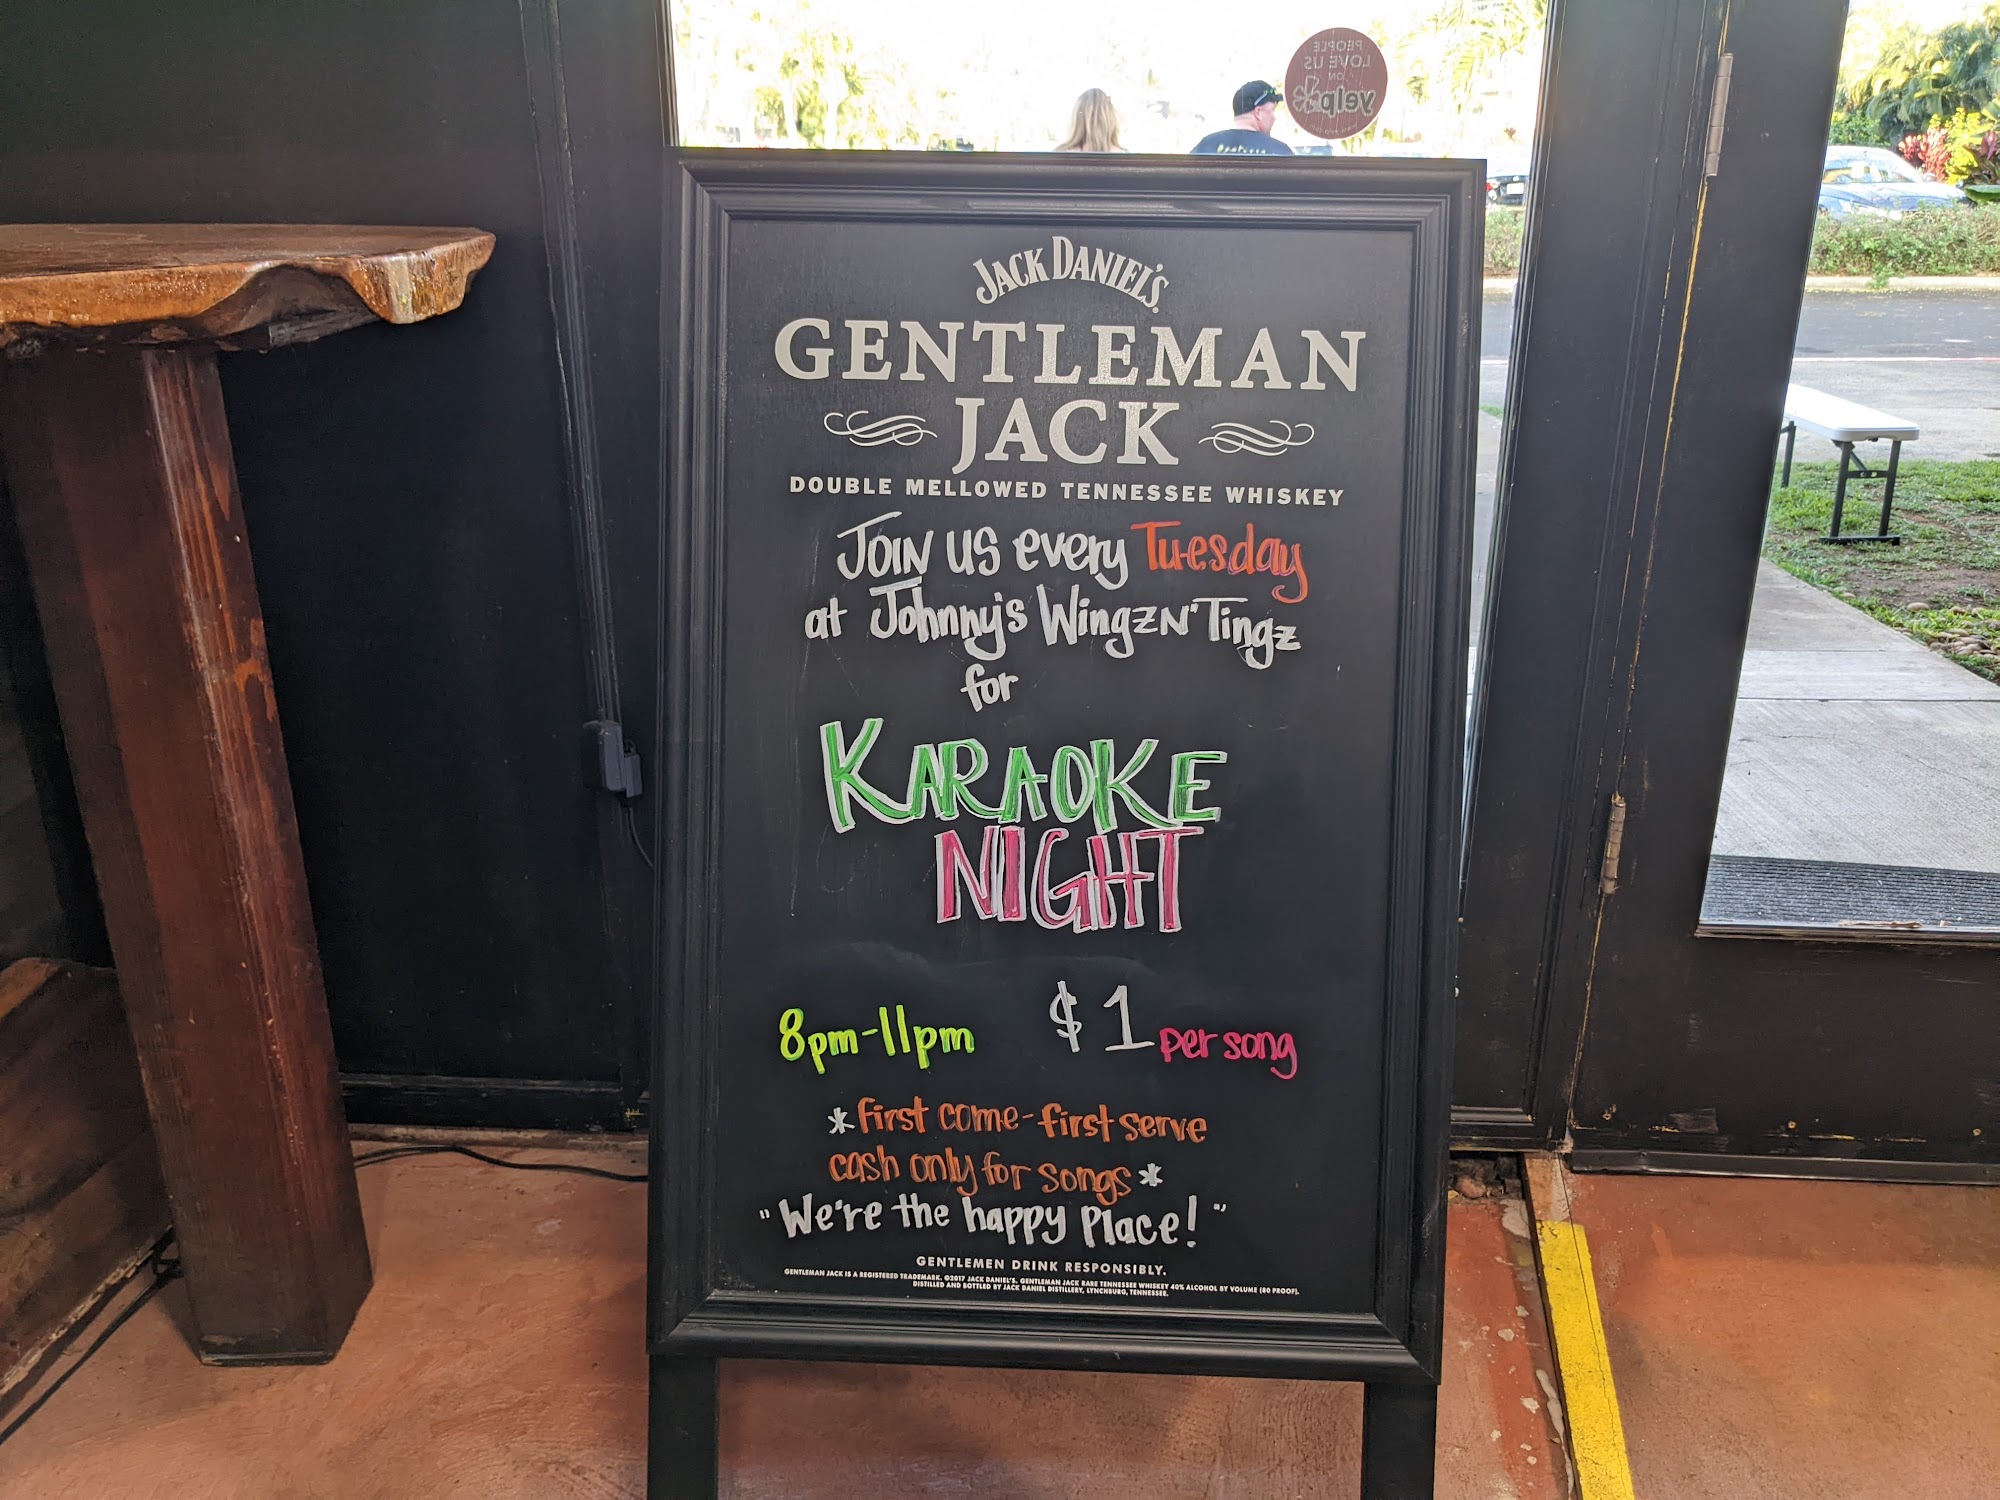 PEOPLE
LOVE US
ON
yelp
JACK DANIEL'S
GENTLEMAN
JACK
DOUBLE MELLOWED TENNESSEE WHISKEY
JOIN US every Tuesday
at Johnny's WingzN'Tingz
for
KARAOKE
NIGHT
8pm-11pm $1 per song
*First come-first serve
cash only for songs*
"We're the happy Place!"
GENTLEMEN DRINK RESPONSIBLY.
GENTLEMAN JACK IS A REGISTERED TRADEMARK. ©2017 JACK DANIEL'S. GENTLEMAN JACK RARE TENNESSEE WHISKEY 40% ALCOHOL BY VOLUME (80 PROOF).
DISTILLED AND BOTTLED BY JACK DANIEL DISTILLERY, LYNCHBURG, TENNESSEE.